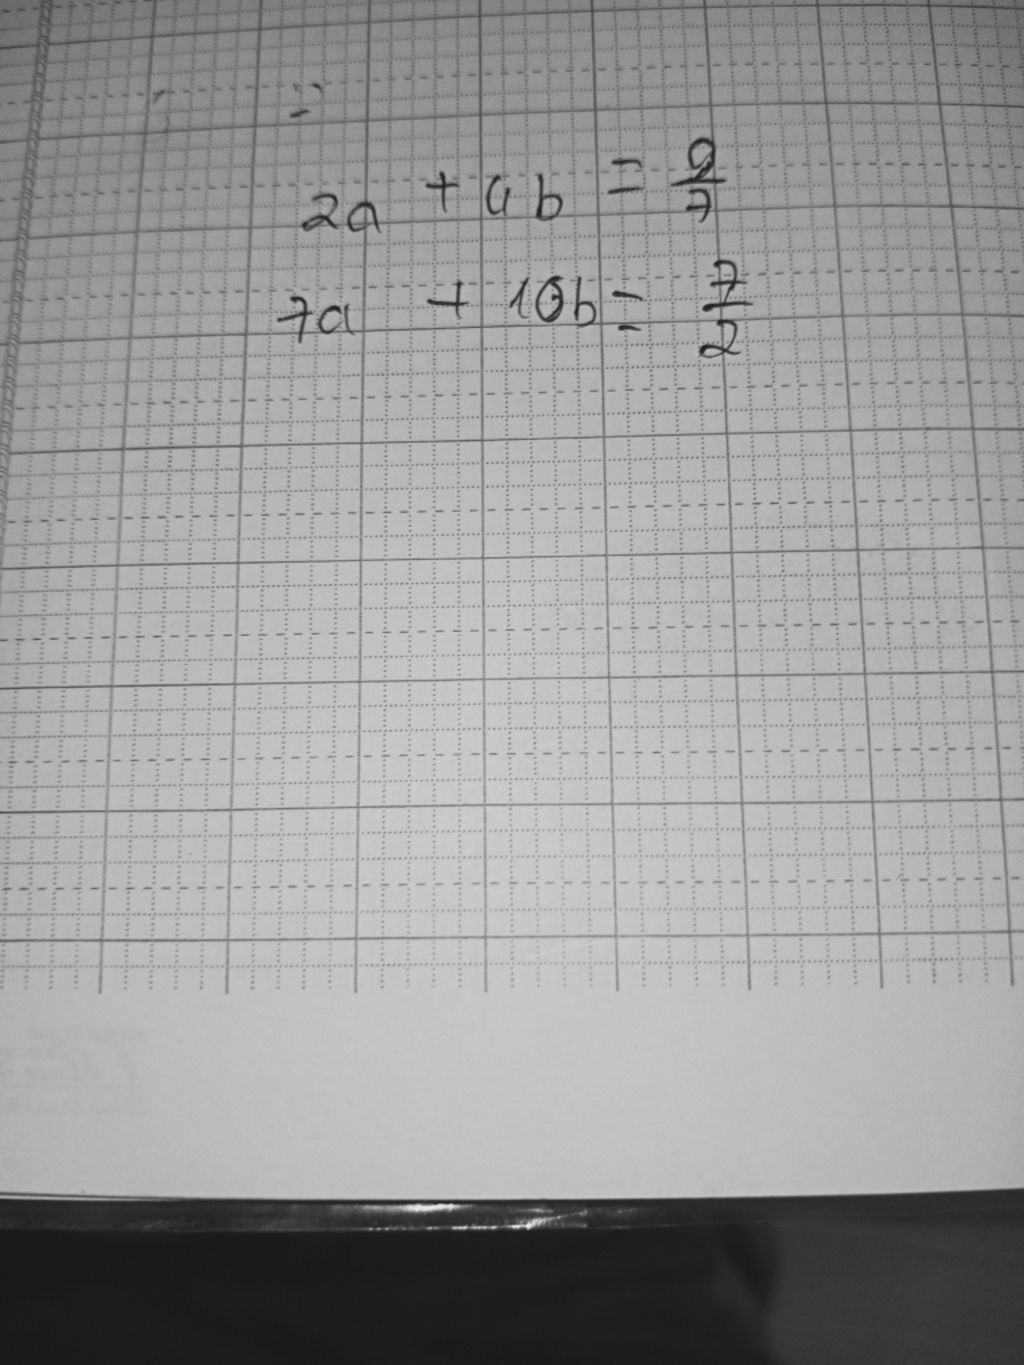 2a + 4b = 9/7
7a + 10b = 7/2